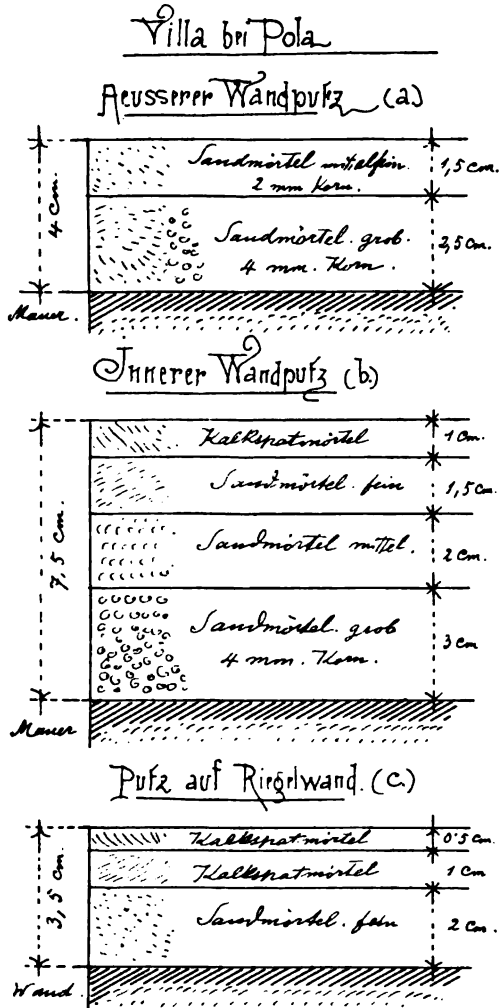 Villa bei Pola
Aeusserer Wandputz (a)
Sandmörtel mittelfein.
2 mm Korn.
1,5 cm.
4 cm.
Sandmörtel. grob.
4 mm. Korn.
2,5 cm.
Mauer.
Innerer Wandputz (b.)
Kalkspatmörtel
1 cm.
Sandmörtel. fein
1,5 cm.
7,5 cm.
Sandmörtel mittel.
2 cm.
Sandmörtel. grob
4 mm. Korn.
3 cm
Mauer
Putz auf Riegelwand. (c.)
Kalkspatmörtel
0.5 cm.
Kalkspatmörtel
1 cm
3,5 cm.
Sandmörtel. fein
2 cm.
Wand.